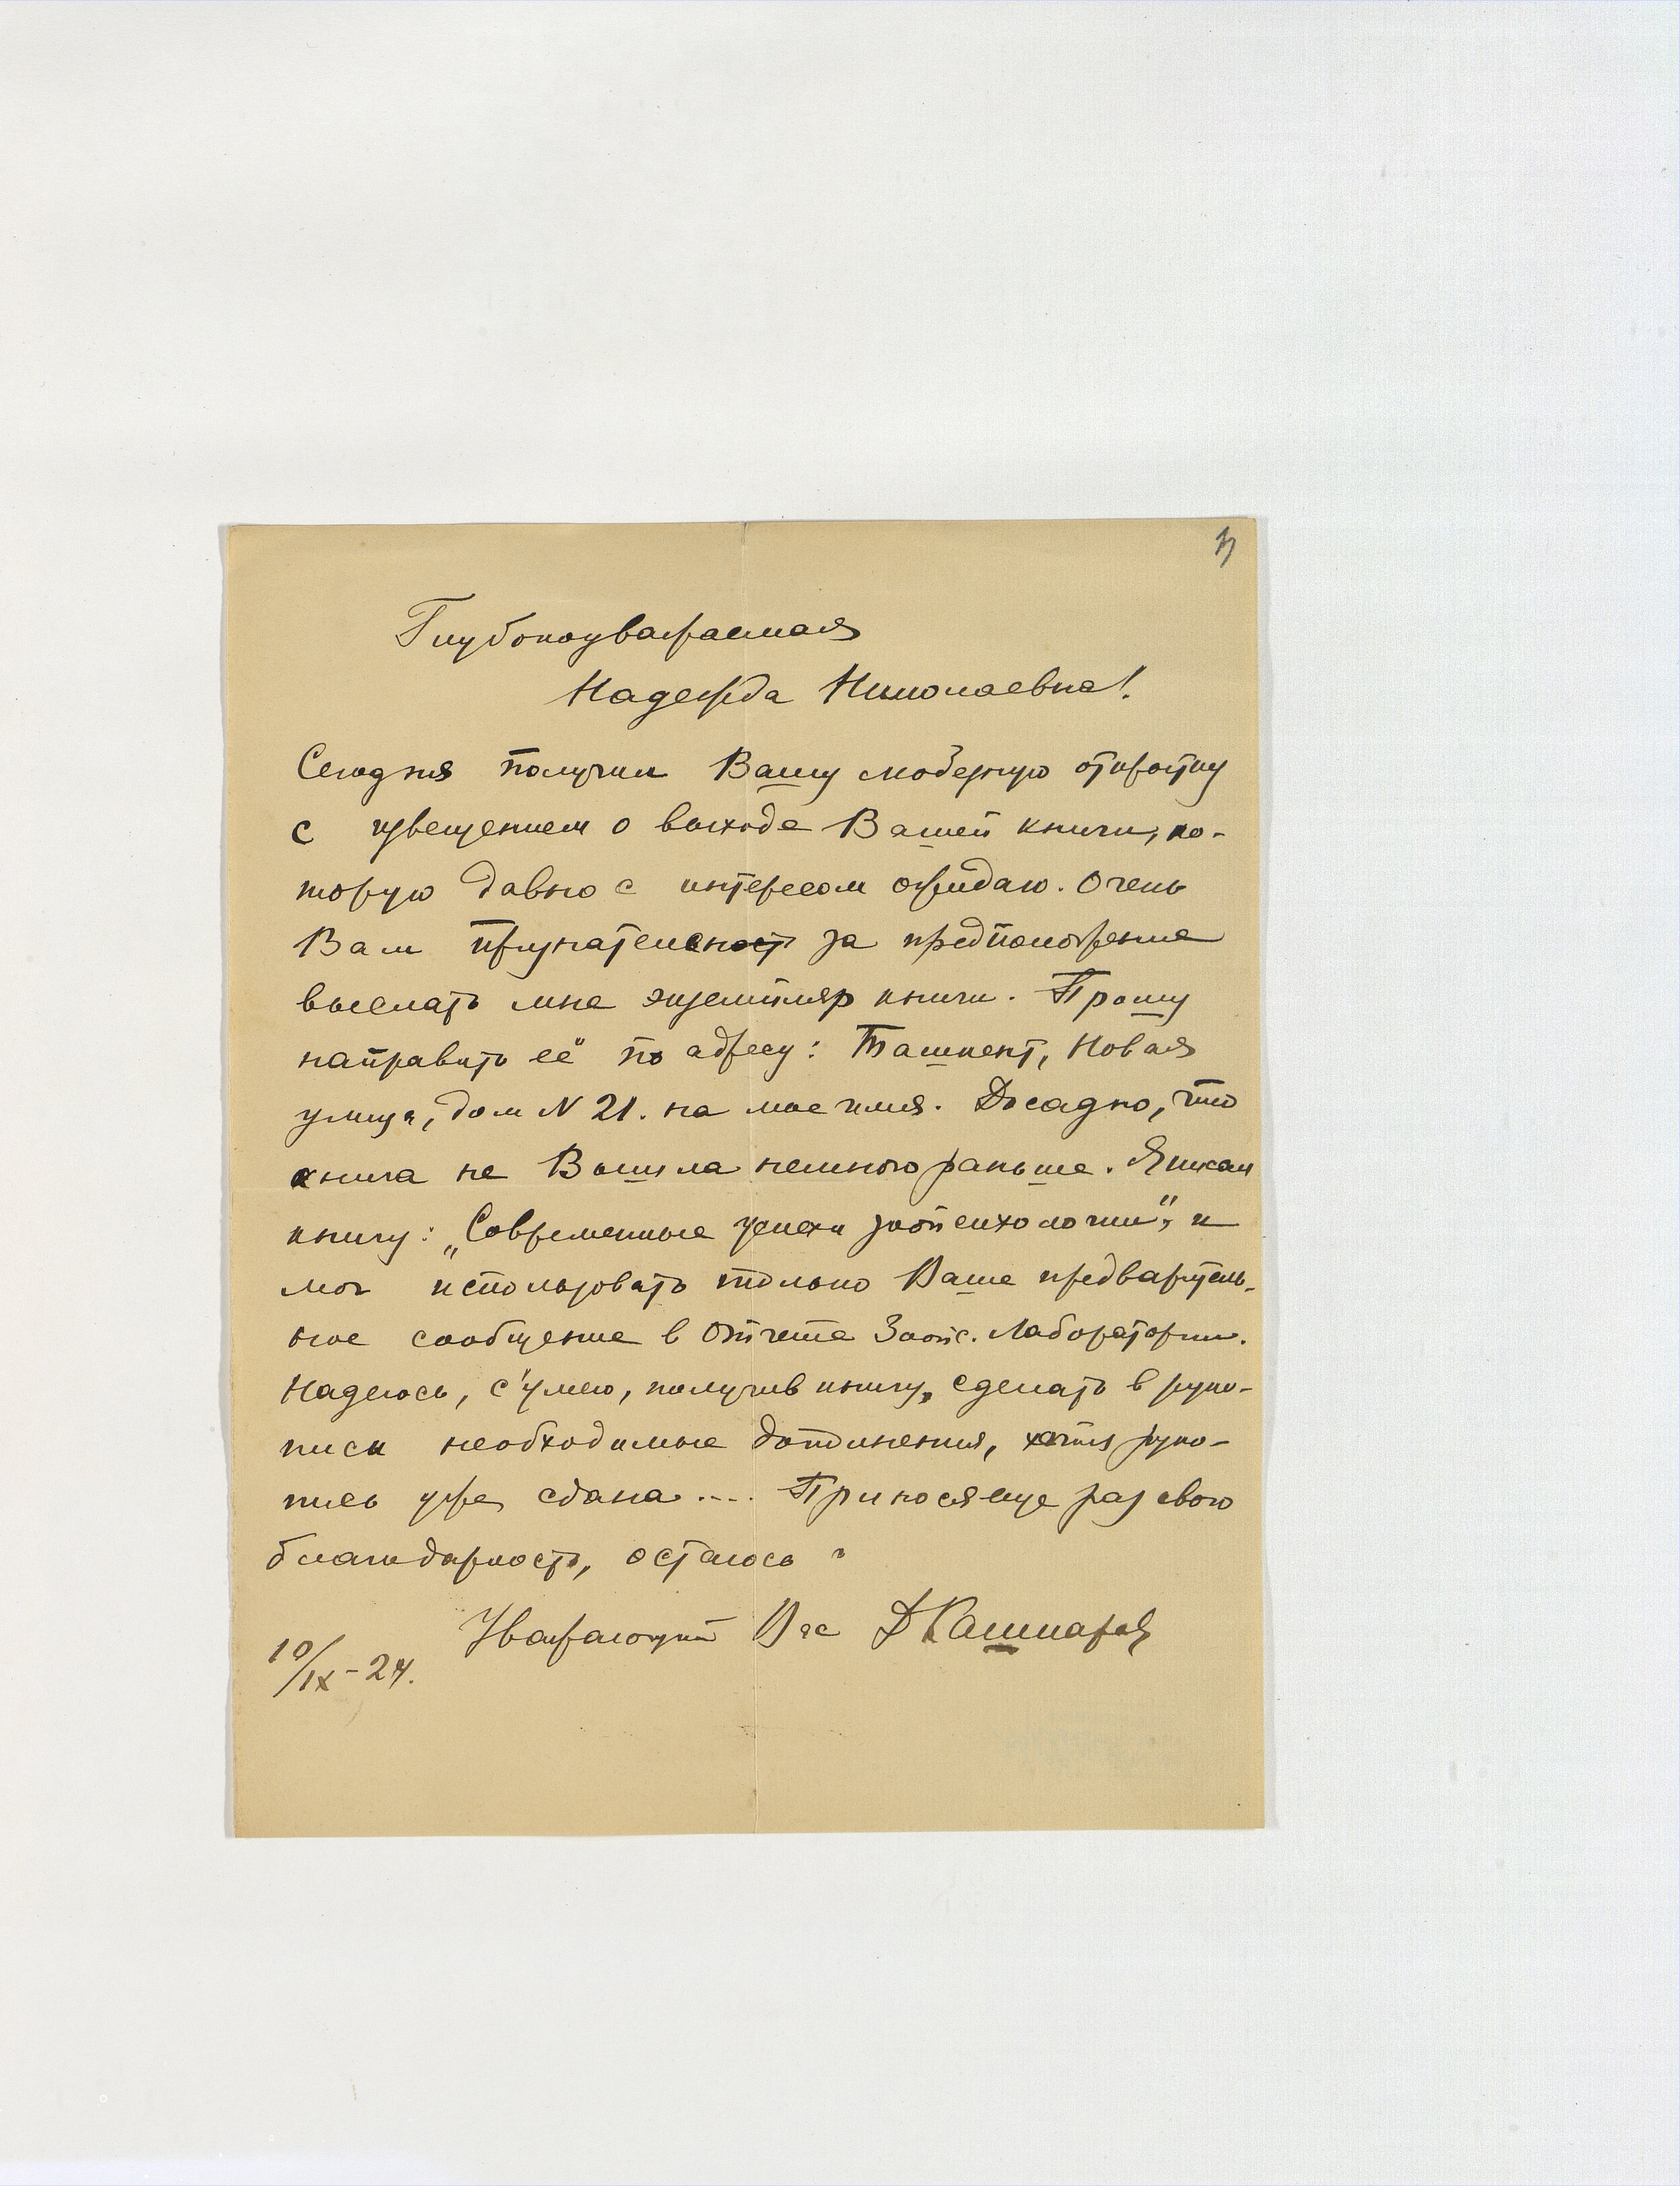 3
Глубокоуважаемая
Надежда Николаевна!
Сегодня получил Вашу любезную открытку
с извещением о выходе Вашей книги, ко-
торую давно с интересом ожидаю. Очень
Вам признателен за предположение
выслать мне экземпляр книги. Прошу
направить её по адресу: Ташкент, Новая
улица, дом N 21. на мое имя. Досадно, что
книга не Вышла немного раньше. Я писал
книгу: „Современные успехи зоопсихологии", и
мог использовать только Ваше предваритель-
ное сообщение в Отчете Зоопс. Лаборатории.
Надеюсь, с'умею, получив книгу, сделать в руко-
писи необходимые дополнения, хотя руко-
пись уже сдана.... Принося еще раз свою
благодарность, остаюсь
Уважающий Вас ДКашкаров
10/IX-24.